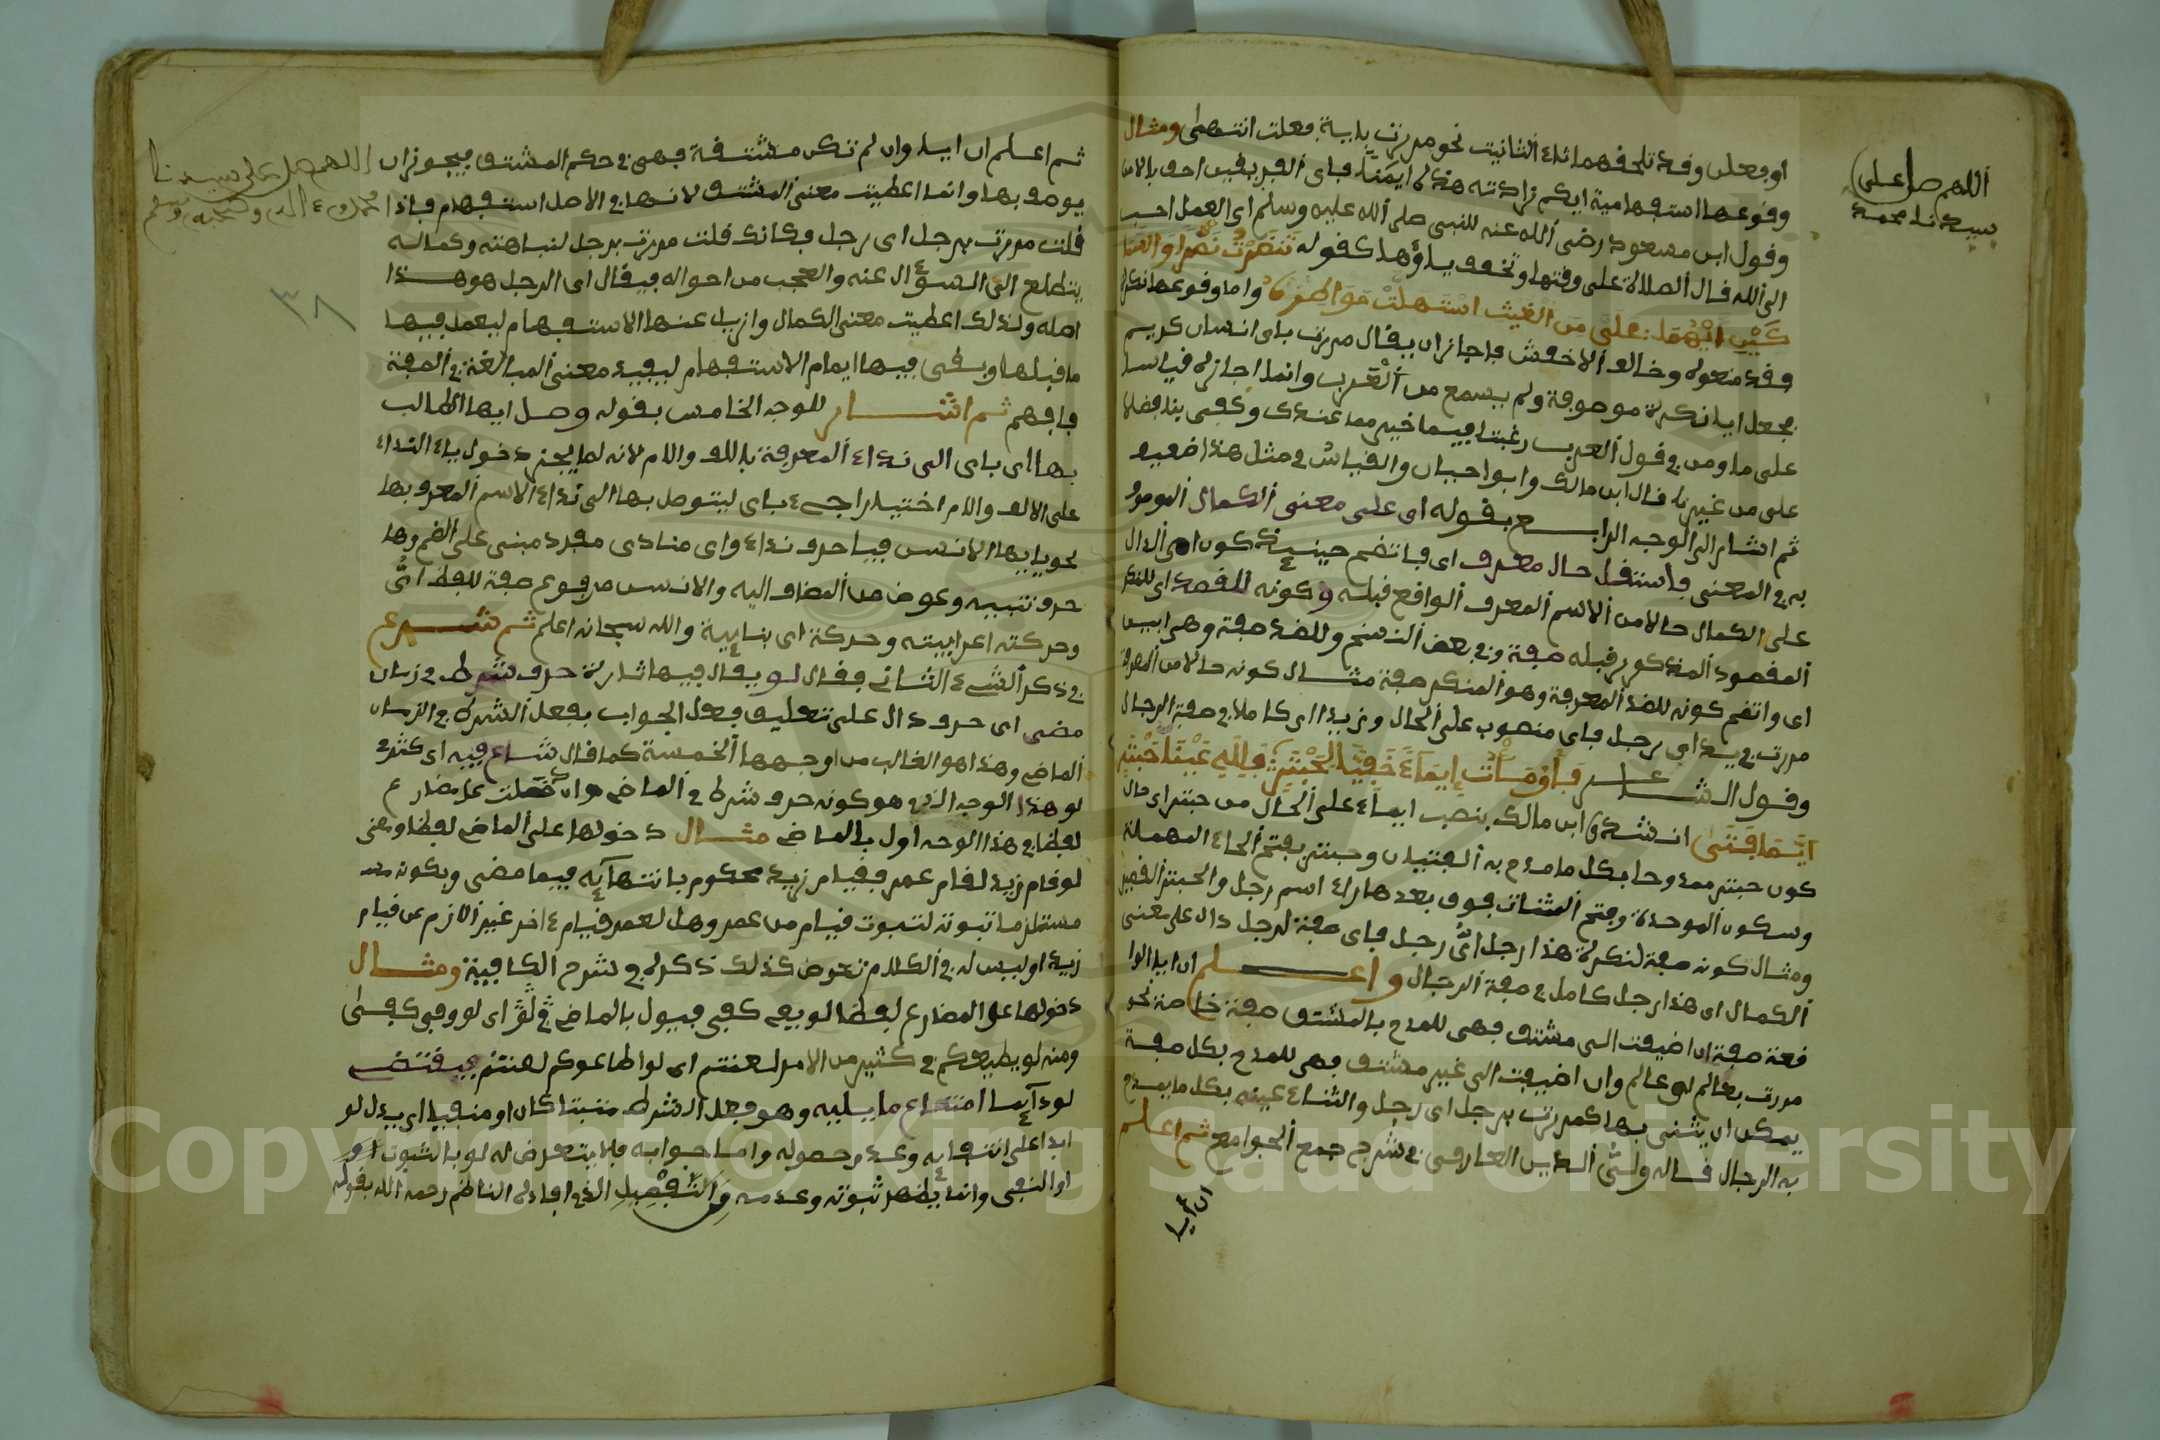 اللهم صل على
سيدنا محمد
او فعل وقد تلحقهما تاء التانيث نحو مررت باية فعلت انتهى ومثال
وقوعها استفهامية ايكم زادته هذه ايمنا فباي الفريقين احق بالامن
وقول ابن مسعود رضي الله عنه للنبي صلى الله عليه وسلم اي العمل احب
الى الله قال الصلاة على وقتها وتخفف ياؤها كقوله تنظرت نصرا والسما
كين ايهما على من الغيث استهلت مواطره واما وقوعها نكرة
فقد منعوله وخالف الاخفش فاجاز ان يقال مررت باي انسان كريم
بجعل ايا نكرة موصوفة ولم يسمع من العرب وانما اجازه قياسا
على ما ومن في قول العرب رغبت فيما خير مما عندك وكفى بنا فضلا
على من غيرنا قال ابن مالك وابوا حيان والقياس في مثل هذا ضعيف
ثم اشار الى الوجه الرابع بقوله اي على معنى الكمال الموموف
به في المعنى فاستقل حال معرف اي فاتضح حينئذ كون اي الدال
على الكمال حالا من الاسم المعرف الواقع قبله وكونه للقصد اي للنكر
المقصود المذكور قبله صفة وفي بعض النسخ وللضد صفة وهي ابين
اي واتضح كونه للضد المعرفة وهو المنكر صفة مثال كونه حالا من المعرفة
مررت بزيد اي رجل فاي منصوب على الحال وزيد اي كاملا في صفة الرجال
وقول الشاعر فاومات ايماء خفيا لحبتر فلله عينا حبتر
ايما فتى انشده ابن مالك بنصب ايما على الحال من حبتر اي حال
كون حبتر ممدوحا بكل ما مدح به الفتيان وحبتر بفتح الحاء المهملة
وسكون الموحدة وفتح المثنات فوق بعدها راء اسم رجل والحبتر القصير
ومثال كونه صفة لنكرة هذا رجل اي رجل فاي صفة لرجل دال على معنى
الكمال اي هذا رجل كامل في صفة الرجال واعلم ان ايا الوا
قعة صفة ان اضيفت الى مشتق فهي للمدح بالمشتق صفة خاصة نحو
مررت بعالم اي عالم وان اضيفت الى غير مشتق فهي للمدح بكل صفة
يمكن ان يثنى بها كمررت برجل اي رجل والثناء عينه بكل ما يمدح
به الرجال قاله ولي الدين العارفي في شرح جمع الجوامع ثم اعلم
ان ايا
اللهم صل على سيدنا
محمد وعلى اله وصحبه وسلم
٣٨
ثم اعلم ان ايا وان لم تكن مشتقة فهي في حكم المشتق فيجوز ان
يوصف بها وانما اعطيت معنى المشتق لانها في الاصل استفهام فاذا
قلت مررت برجل اي رجل فكانك قلت مررت برجل لنباهته وكماله
يتطلع الى السؤال عنه والعجب من احواله فيقال اي الرجل هو هذا
اصله ولذلك اعطيت معنى الكمال وازيل عنها الاستفهام ليعمل فيها
ما قبلها وبقى فيها ايهام الاستفهام ليفيد معنى المبالغة في الصفة
فافهم ثم اشار للوجه الخامس بقوله وصل ايها الطالب
بها اي باي الى نداء المعرفة بالالف واللام لانه لما لم يجز دخول ياء النداء
على الالف واللام اختيارا جيء باي ليتوصل بها الى نداء الاسم المعرف بها
نحو يا ايها الانس فيا حرف نداء واي منادى مفرد مبني على الضم وها
حرف تنبيه وعوض من المضاف اليه والانس مرفوع صفة للفظ اي
وحركته اعرابيته وحركة اي بنايية والله سبحانه اعلم ثم شرع
في ذكر الشيء الثاني فقال لو يقال فيها تارة حرف شرط في زمان
مضى اي حرف دال على تعليق فعل الجواب بفعل الشرط في الزمان
الماضي وهذا هو الغالب من اوجهها الخمسة كما قال شاع فيه اي كثر
لو هذا الوجه الذي هو كونه حرف شرط في الماضي وان دخلت على مضارع
لفظا في هذا الوجه اول بالماضي مثال دخولها على الماضي لفظا ومعنى
لو قام زيد لقام عمر فقيام زيد محكوم بانتهايه فيما مضى وبكونه
مستلزما ثبوته لثبوت قيام من عمر وهل لعمر قيام ءاخر غير اللازم عن قيام
زيد او ليس له في الكلام تعرض كذلك ذكره في شرح الكافية ومثال
دخولها على المضارع لفظا لو يفي كفى فيول بالماضي في لو اي لو وفى كفى
ومنه لو يطيعكم في كثير من الامر لعنتم اي لو اطاعوكم لعنتم فيقتضي
لو دايما امتناع ما يليه وهو فعل الشرط مثبتا كان او منفيا اي يدل لو
ابدا على انتفايه وعدم حصوله واما جوابه فلا يتعرض له لو بالثبوت او
او النفي وانما يظهر ثبوته وعدمه والتفصيل الذي افاده الناظم رحمه الله بقوله